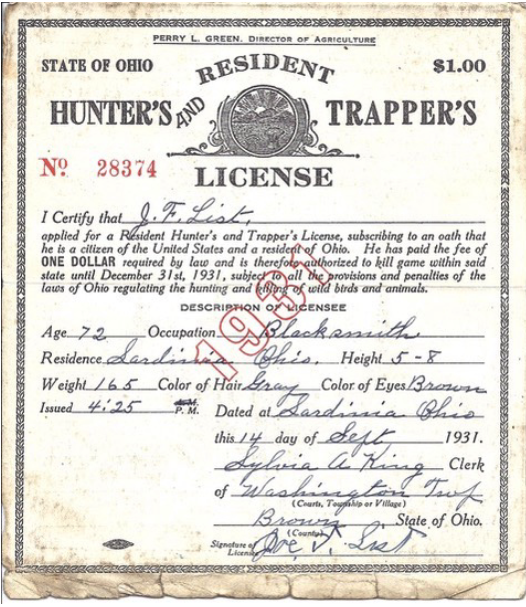 PERRY L. GREEN, DIRECTOR OF AGRICULTURE
STATE OF OHIO RESIDENT $1.00
HUNTER'S AND TRAPPER'S
No. 28374
LICENSE
I Certify that J. F. List,
applied for a Resident Hunter's and Trapper's License, subscribing to an oath that
he is a citizen of the United States and a resident of Ohio. He has paid the fee of
ONE DOLLAR required by law and is therefore authorized to kill game within said
state until December 31st, 1931, subject to all the provisions and penalties of the
laws of Ohio regulating the hunting and killing of wild birds and animals.
1931
DESCRIPTION OF LICENSEE
Age 72 Occupation Blacksmith
Residence Sardinia Ohio. Height 5-8
Weight 165 Color of Hair Gray Color of Eyes Brown
Issued 4:25 A.M. P.M. Dated at Sardinia Ohio
this 14 day of Sept 1931.
Sylvia A King Clerk
of Washington Twp
(Courts, Township or Village)
Brown, State of Ohio.
(County)
Signature of Licensee Joe. F. List